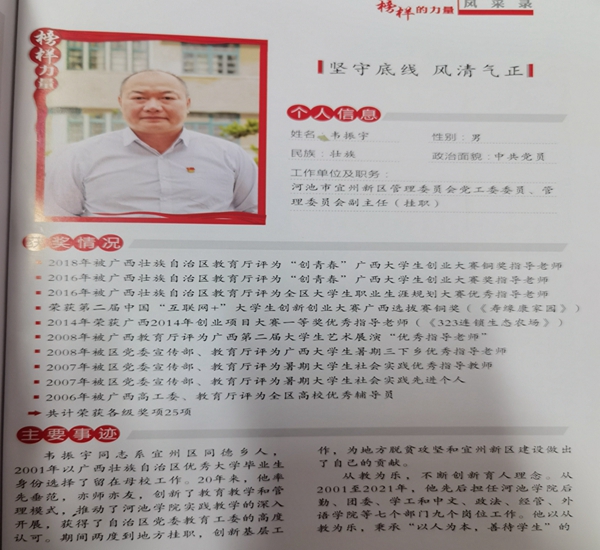 榜样的力量
风采录
榜样力量
坚守底线 风清气正
个人信息
姓名：韦振宇
性别：男
民族：壮族
政治面貌：中共党员
工作单位及职务：
河池市宜州新区管理委员会党工委委员、管
理委员会副主任（挂职）
获奖情况
2018年被广西壮族自治区教育厅评为“创青春”广西大学生创业大赛铜奖指导老师
2016年被广西壮族自治区教育厅评为“创青春”广西大学生创业大赛铜奖指导老师
2016年被广西壮族自治区教育厅评为全区大学生职业生涯规划大赛优秀指导老师
荣获第二届中国“互联网+”大学生创新创业大赛广西选拔赛铜奖（《寿缘康家园》）
2014年荣获广西2014年创业项目大赛一等奖优秀指导老师（《323连锁生态农场》）
2008年被广西教育厅评为广西第二届大学生艺术展演“优秀指导老师”
2008年被区党委宣传部、教育厅评为广西大学生暑期三下乡优秀指导老师
2007年被区党委宣传部、教育厅评为暑期大学生社会实践优秀指导教师
2007年被区党委宣传部、教育厅评为暑期大学生社会实践先进个人
2006年被广西高工委、教育厅评为全区高校优秀辅导员
共计荣获各级奖项25项
主要事迹
韦振宇同志系宜州区同德乡人，
2001年以广西壮族自治区优秀大学毕业生
身份选择了留在母校工作。20年来，他率
先垂范，亦师亦友，创新了教育教学和管
理模式，推动了河池学院实践教学的深入
开展，获得了自治区党委教育工委的高度
认可。期间两度到地方挂职，创新基层工
作，为地方脱贫攻坚和宜州新区建设做出
了自己的贡献。
从教为乐，不断创新育人理念。从
2001至2021年，他先后担任河池学院后
勤、团委、学工和中文、政法、经管、外
语学院等七个部门九个岗位工作。他以从
教为乐，秉承“以人为本，善待学生”的